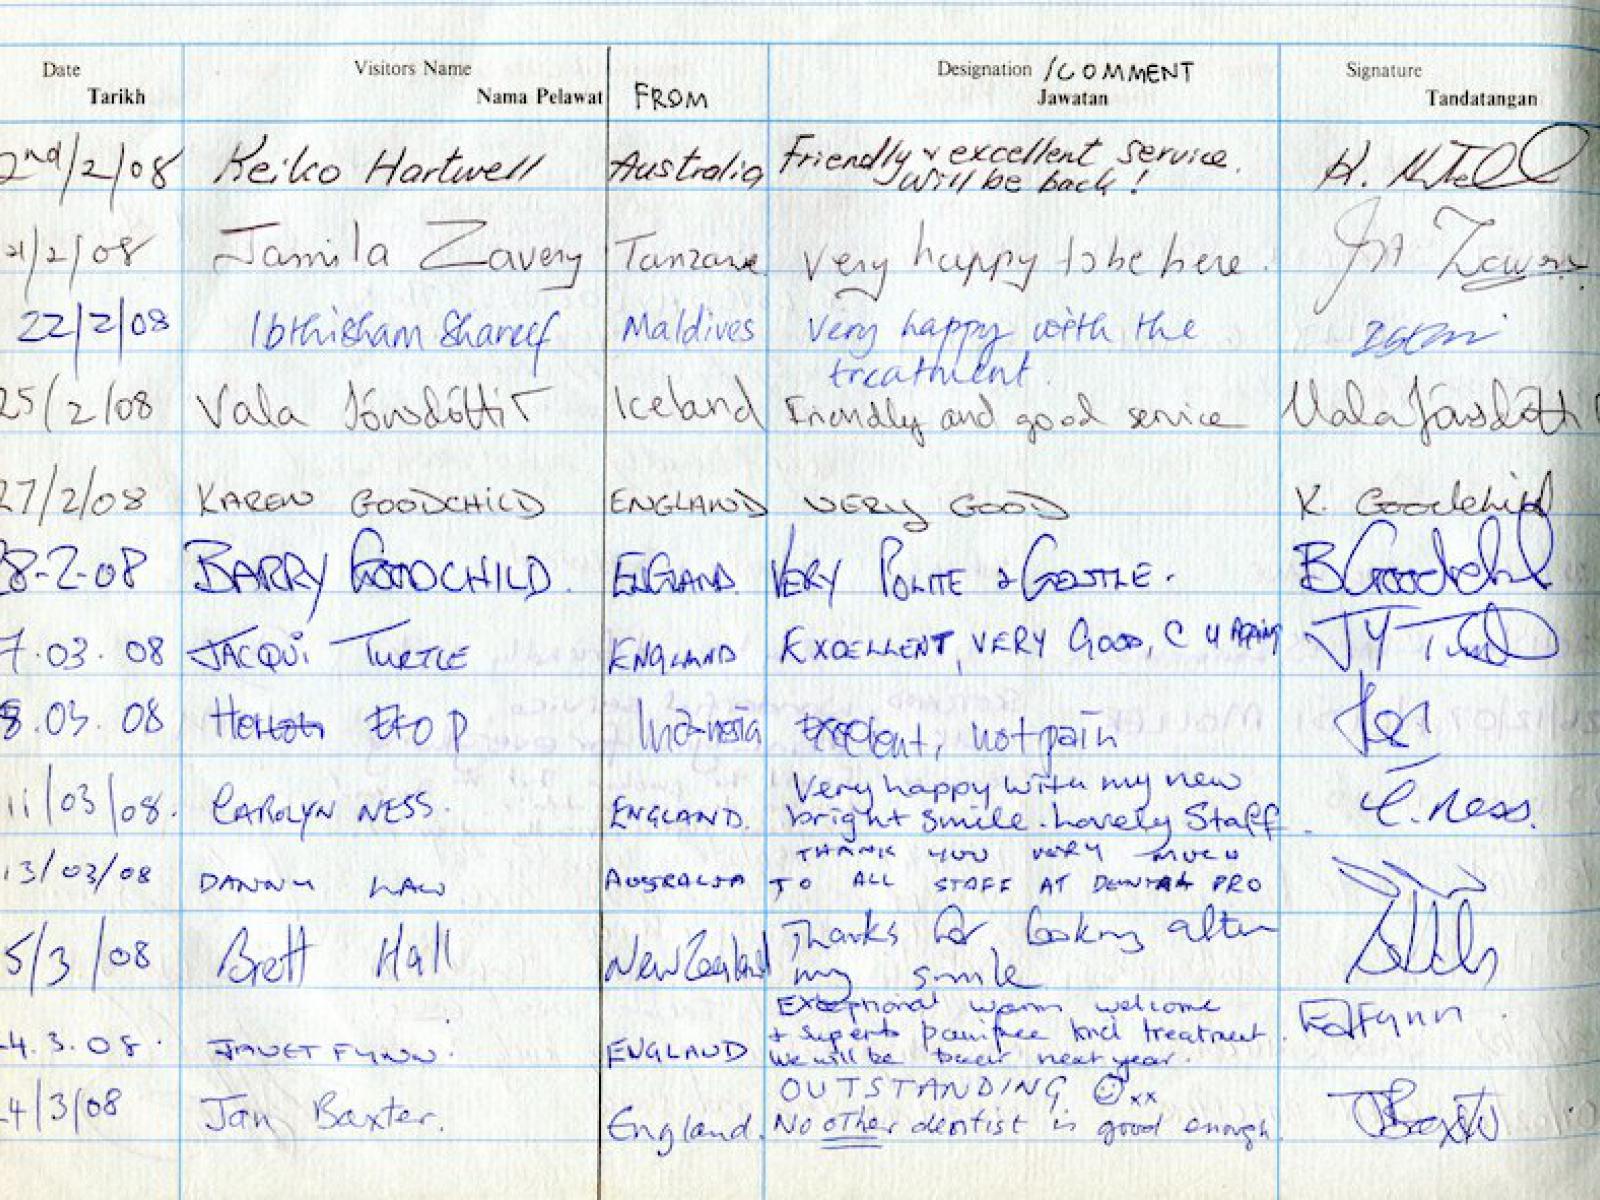 Date Visitors Name Designation /COMMENT Signature
Tarikh Nama Pelawat FROM Jawatan Tandatangan
2nd/2/08 Keiko Hartwell Australia Friendly & excellent service. K. Hartwell
Will be back!
21/2/08 Jamila Zavery Tanzania Very happy to be here.
22/2/08 Ibthisham Shareef Maldives Very happy with the
treatment.
25/2/08 Vala Jónsdóttir Iceland Friendly and good service Vala Jónsdóttir
27/2/08 KAREN GOODCHILD ENGLAND VERY GOOD K. Goodchild
28-2-08 BARRY GOODCHILD. ENGLAND. VERY POLITE & GENTLE. B Goodchild
7.03.08 JACQUI TURTLE ENGLAND EXCELLENT, VERY GOOD, C U AGAIN
8.03.08 Indonesia Excellent, not pain
11/03/08. CAROLYN NESS. ENGLAND. Very happy with my new C. Ness.
bright smile. Lovely Staff.
13/03/08 DANNY LAW AUSTRALIA THANK YOU VERY MUCH
TO ALL STAFF AT DENTAL PRO
5/3/08 Brett Hall New Zealand Thanks for looking after
my smile
4.3.08. JANET FYNN. ENGLAND Exceptional warm welcome
+ superb painfree kind treatment.
We will be back next year.
4/3/08 Jan Baxter. England. OUTSTANDING xx
No other dentist is good enough